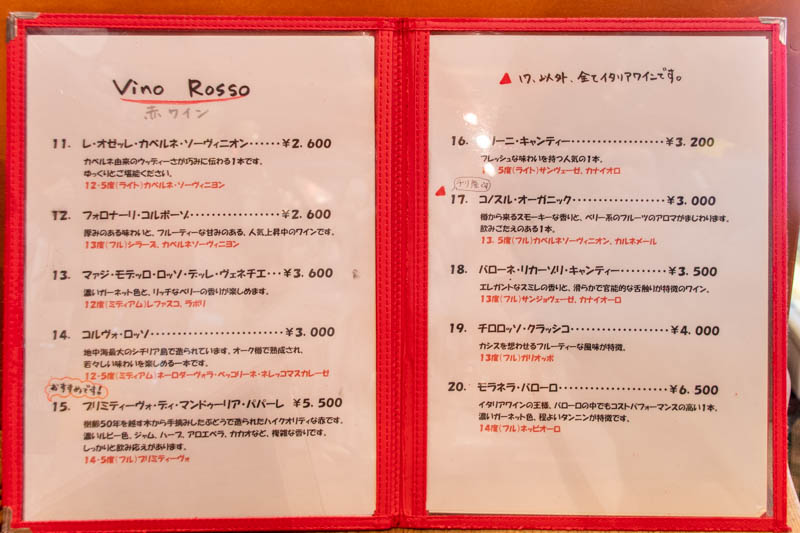 Vino Rosso
赤ワイン
11. レ・オゼッレ・カベルネ・ソーヴィニオン......¥2.600
カベルネ由来のウッディーさが巧みに伝わる1本です。
ゆっくりとご堪能ください。
12・5度(ライト)カベルネ・ソーヴィニヨン
12. フォロナーリ・コルポーゾ..................¥2.600
厚みのある味わいと、フルーティーな甘みのある、人気上昇中のワインです。
13度(フル)シラーズ、カベルネソーヴィニヨン
13. マァジ・モデッロ・ロッソ・デッレ・ヴェネチエ...¥3.600
濃いガーネット色と、リッチなベリーの香りが楽しめます。
12度(ミディアム)レファスコ、ラボリ
14. コルヴォ・ロッソ.....................¥3.000
地中海最大のシチリア島で造られています。オーク樽で熟成され、
若々しい味わいを楽しめる一本です。
12・5度(ミディアム)ネーロダーヴォラ・ペッコリーネ・ネレッコマスカレーゼ
おすすめです!
15. プリミティーヴォ・ディ・マンドゥーリア・パパーレ ¥5.500
樹齢50年を越す木から手摘みしたぶどうで造られたハイクオリティな赤です。
濃いルビー色、ジャム、ハーブ、アロエベラ、カカオなど、複雑な香りです。
しっかりと飲み応えがあります。
14・5度(フル)プリミティーヴォ
▲ 17、以外、全てイタリアワインです。
16. リーニ・キャンティー.....................¥3.200
フレッシュな味わいを持つ人気の1本。
5度(ライト)サンヴェーゼ、カナイオロ
チリ産です
▲
17. コノスル・オーガニック.....................¥3.000
樽から来るスモーキーな香りと、ベリー系のフルーツのアロマがまじわります。
飲みごたえのある1本。
13.5度(フル)カベルネソーヴィニオン、カルネメール
18. バローネ・リカーゾリ・キャンティー............¥3.500
エレガントなスミレの香りと、滑らかで官能的な舌触りが特徴のワイン。
13度(フル)サンジョヴェーゼ、カナイオーロ
19. チロロッソ・クラッシコ.....................¥4.000
カシスを想わせるフルーティーな風味が特徴。
13度(フル)ガリオッポ
20. モラネラ・バローロ.....................¥6.500
イタリアワインの王様、バローロの中でもコストパフォーマンスの高い1本。
濃いガーネット色、程よいタンニンが特徴です。
14度(フル)ネッビオーロ